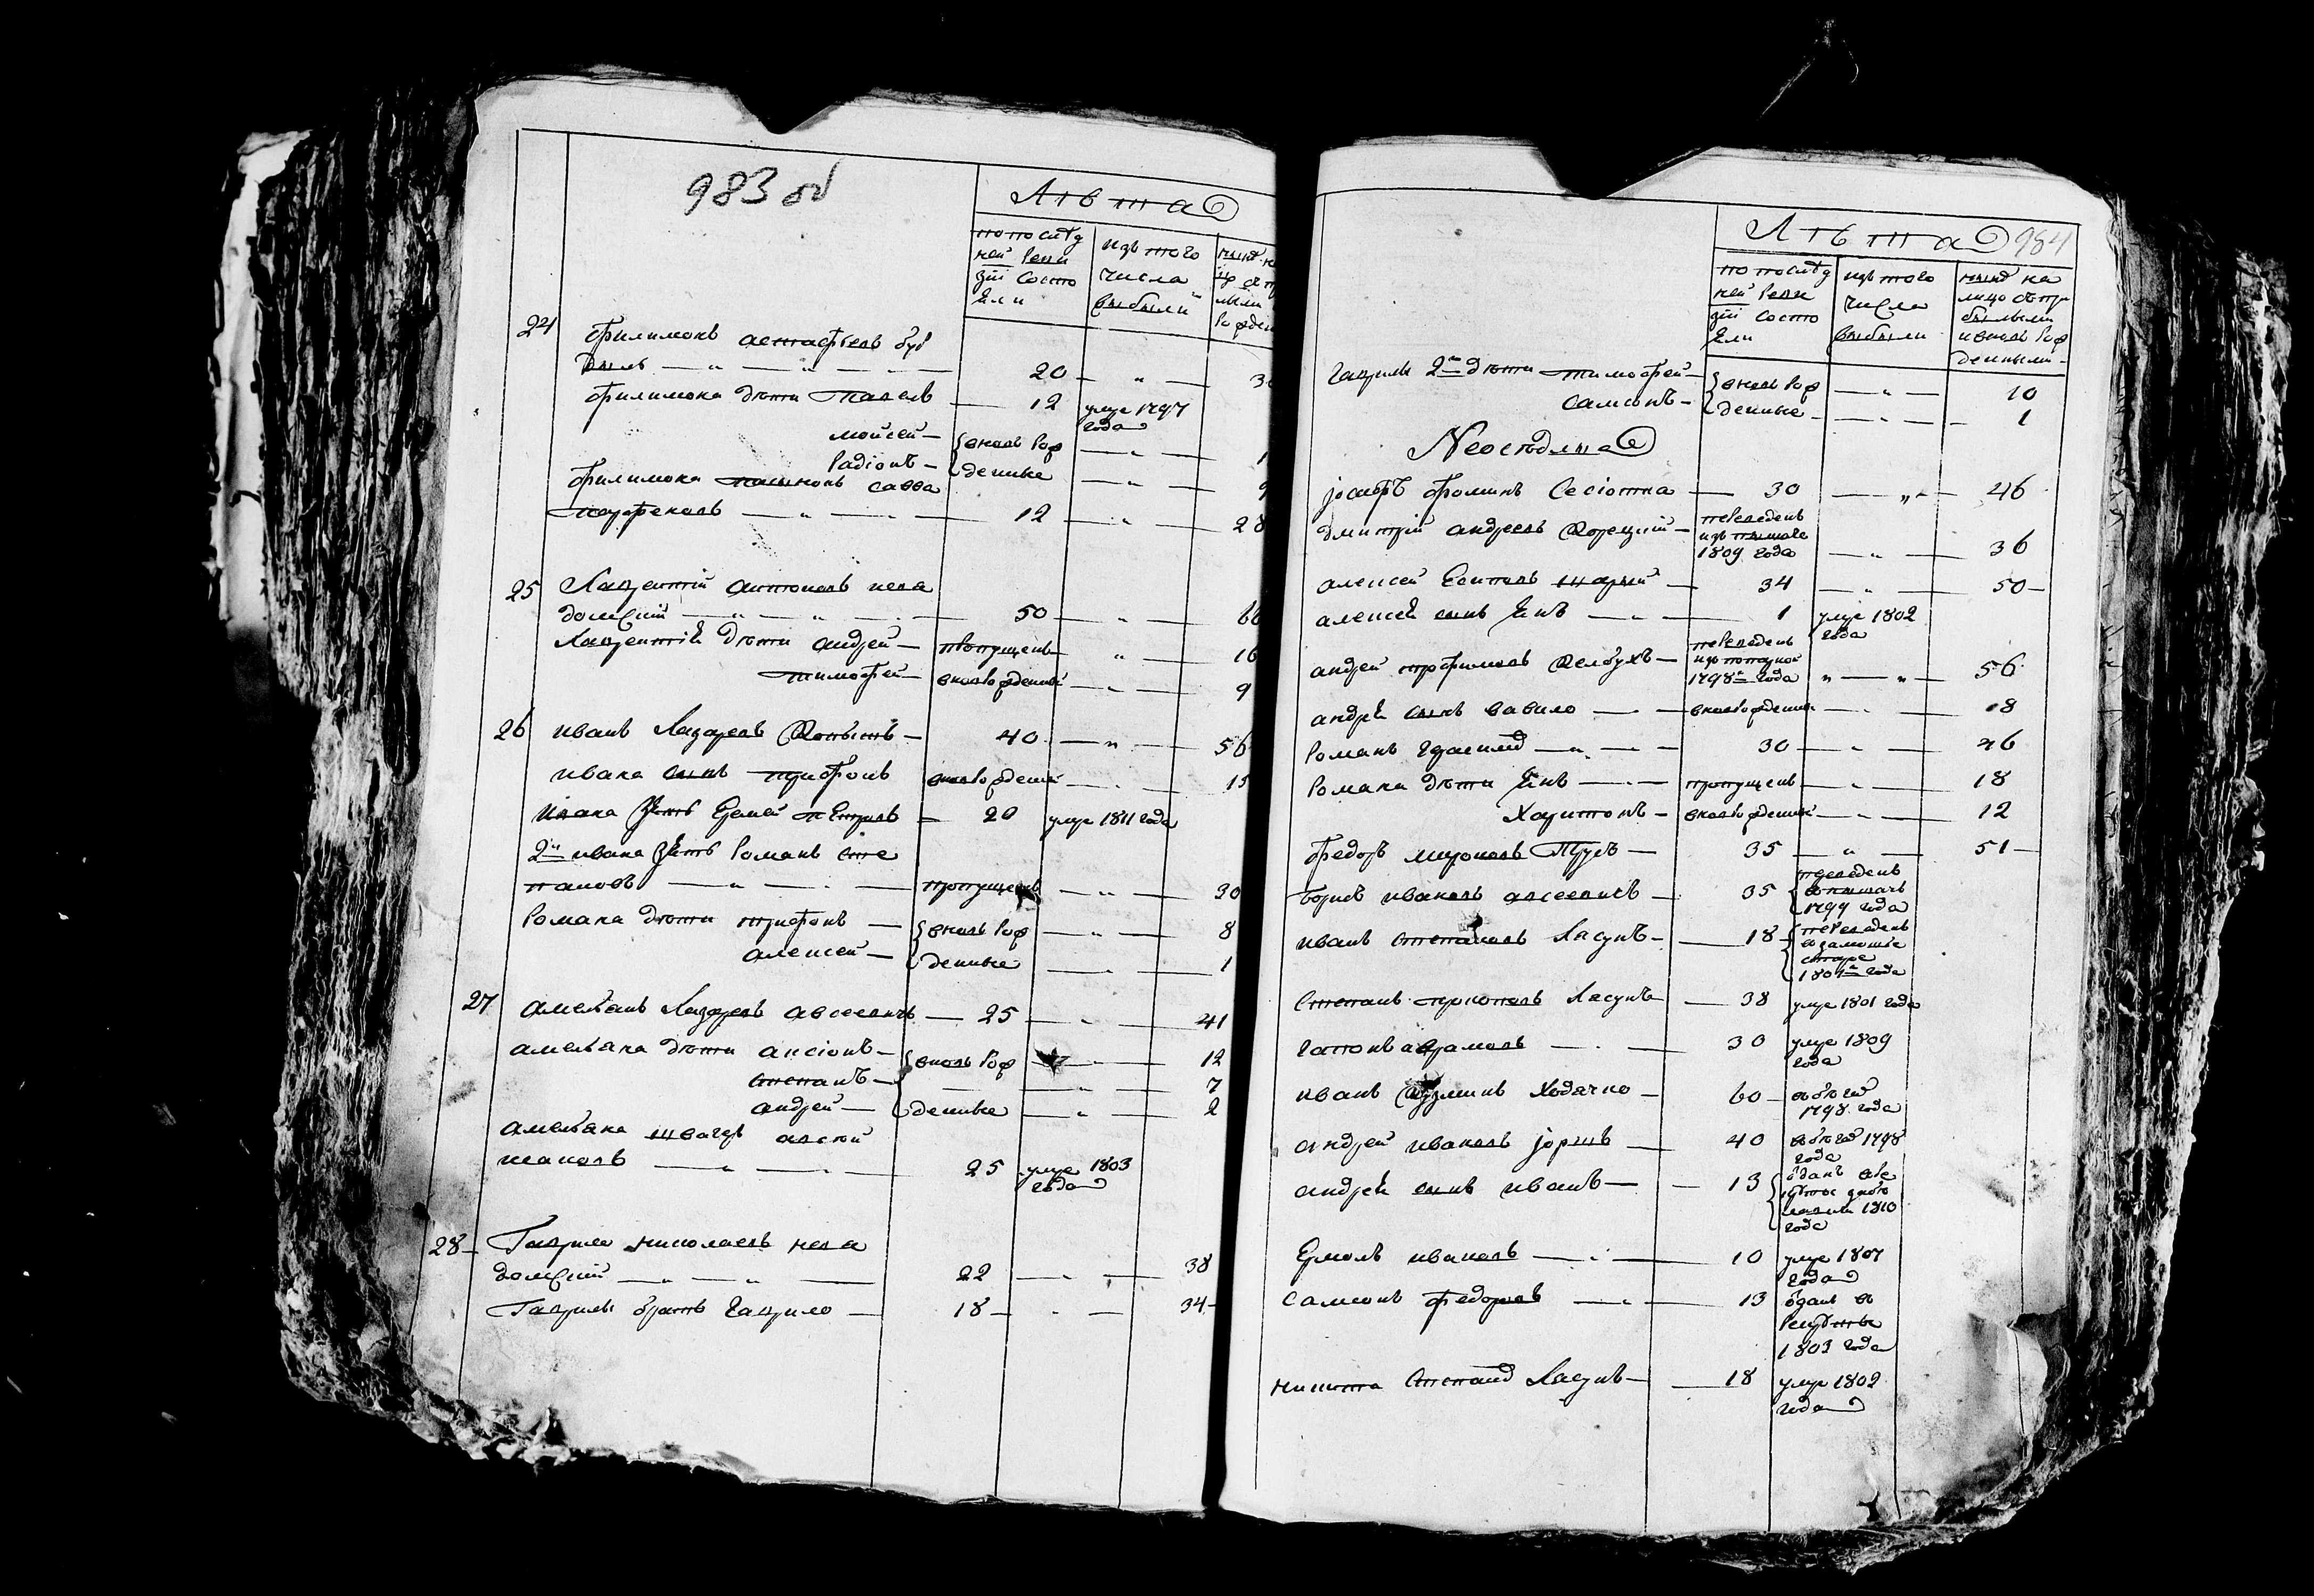 983 об
Лѣта
по послѣд
ней реви
зіи состо
яли
изъ того
числа
выбыли
24
Филимонъ астафьевъ буд
20 — " —
Филимона дѣти павелъ — 12 умре 1797
года
моисей — вновь рож — " —
Радіонъ — денные — " — 9
Филимона савва
— " — 12 — " — 28
25 Лаврентій антоновъ нева
домскій — " — " — 50 — " — 66
Лаврентія дѣти андрей — пропущенъ " — 16
тимофей — вновьрожденный — " — 9
26 иванъ Лазаревъ — 40 — " — 56
ивана сынъ трифонъ вновьрожденный — " — 15
ивана зять Ермей петровъ — 20 умре 1811 года
2й ивана зять Романъ сте
пановъ — " — пропущенъ — " — 30
Романа дѣти трифонъ — вновь рож — " — 8
алексей — денные — " — 1
27 амельянъ Лазаревъ авсеевичъ — 25 — " — 41
амельяна дѣти аксіонъ — вновь рож — " — 12
степанъ — — " — 7
андрей — денные — " — 2
амельяна швагеръ
— " — 25 умре 1803
года
28 Гаврило николаевъ нева
домскій — " — " — 22 — " — 38
Гаврилы братъ гаврило — 18 — " — 34
Лѣта 984
по послѣд
ней реви
зіи состо
яли
изъ того
числа
выбыли
нынѣ на
лицо съ при
былыми
и вновь рож
денными
гаврилы 2го дѣти тимофей — вновь рож — " — 10
самсонъ — денные — " — 1
Неосѣдлыя
іосифъ фоминъ Сесіотка — 30 — " — 46
дмитрій андреевъ Корецкій — переведенъ
изъ
1809 года — " — 36
алексей есиповъ шарый — 34 — " — 50
алексея сынъ янъ — " — 1 умре 1802
года
андрей трофимовъ Келбухъ — переведенъ
изъ
1798го года " — " — 56
андрея сынъ вавило — " — вновьрожденный — " — 8
Романъ — " — 30 — " — 46
Романа дѣти янъ — " — пропущенъ — " — 18
Харитонъ — вновьрожденный — " — 12
Федоръ мироновъ Трусъ — 35 — " — 51
Борисъ ивановъ авсеевичъ — 35 переведенъ
1799 года
иванъ степановъ Ласунъ — 18 переведенъ
в замошье
старе
1801го года
Степанъ прокоповъ Ласунъ — 38 умре 1801 года
гапонъ аврамовъ — " — 30 умре 1809
года
иванъ кузминъ Ходачко — 60 въ бѣгах
1798 года
андрей ивановъ іоршъ — 40 въ бѣгах 1798
года
андрея сынъ иванъ — 13 отданъ в ре
круты
1810
года
Ермолъ ивановъ — " — 10 умре 1807
года
самсонъ федоровъ — " — 13 отданъ въ
рекруты
1803 года
никита степановъ Ласунъ — 18 умре 1802
года